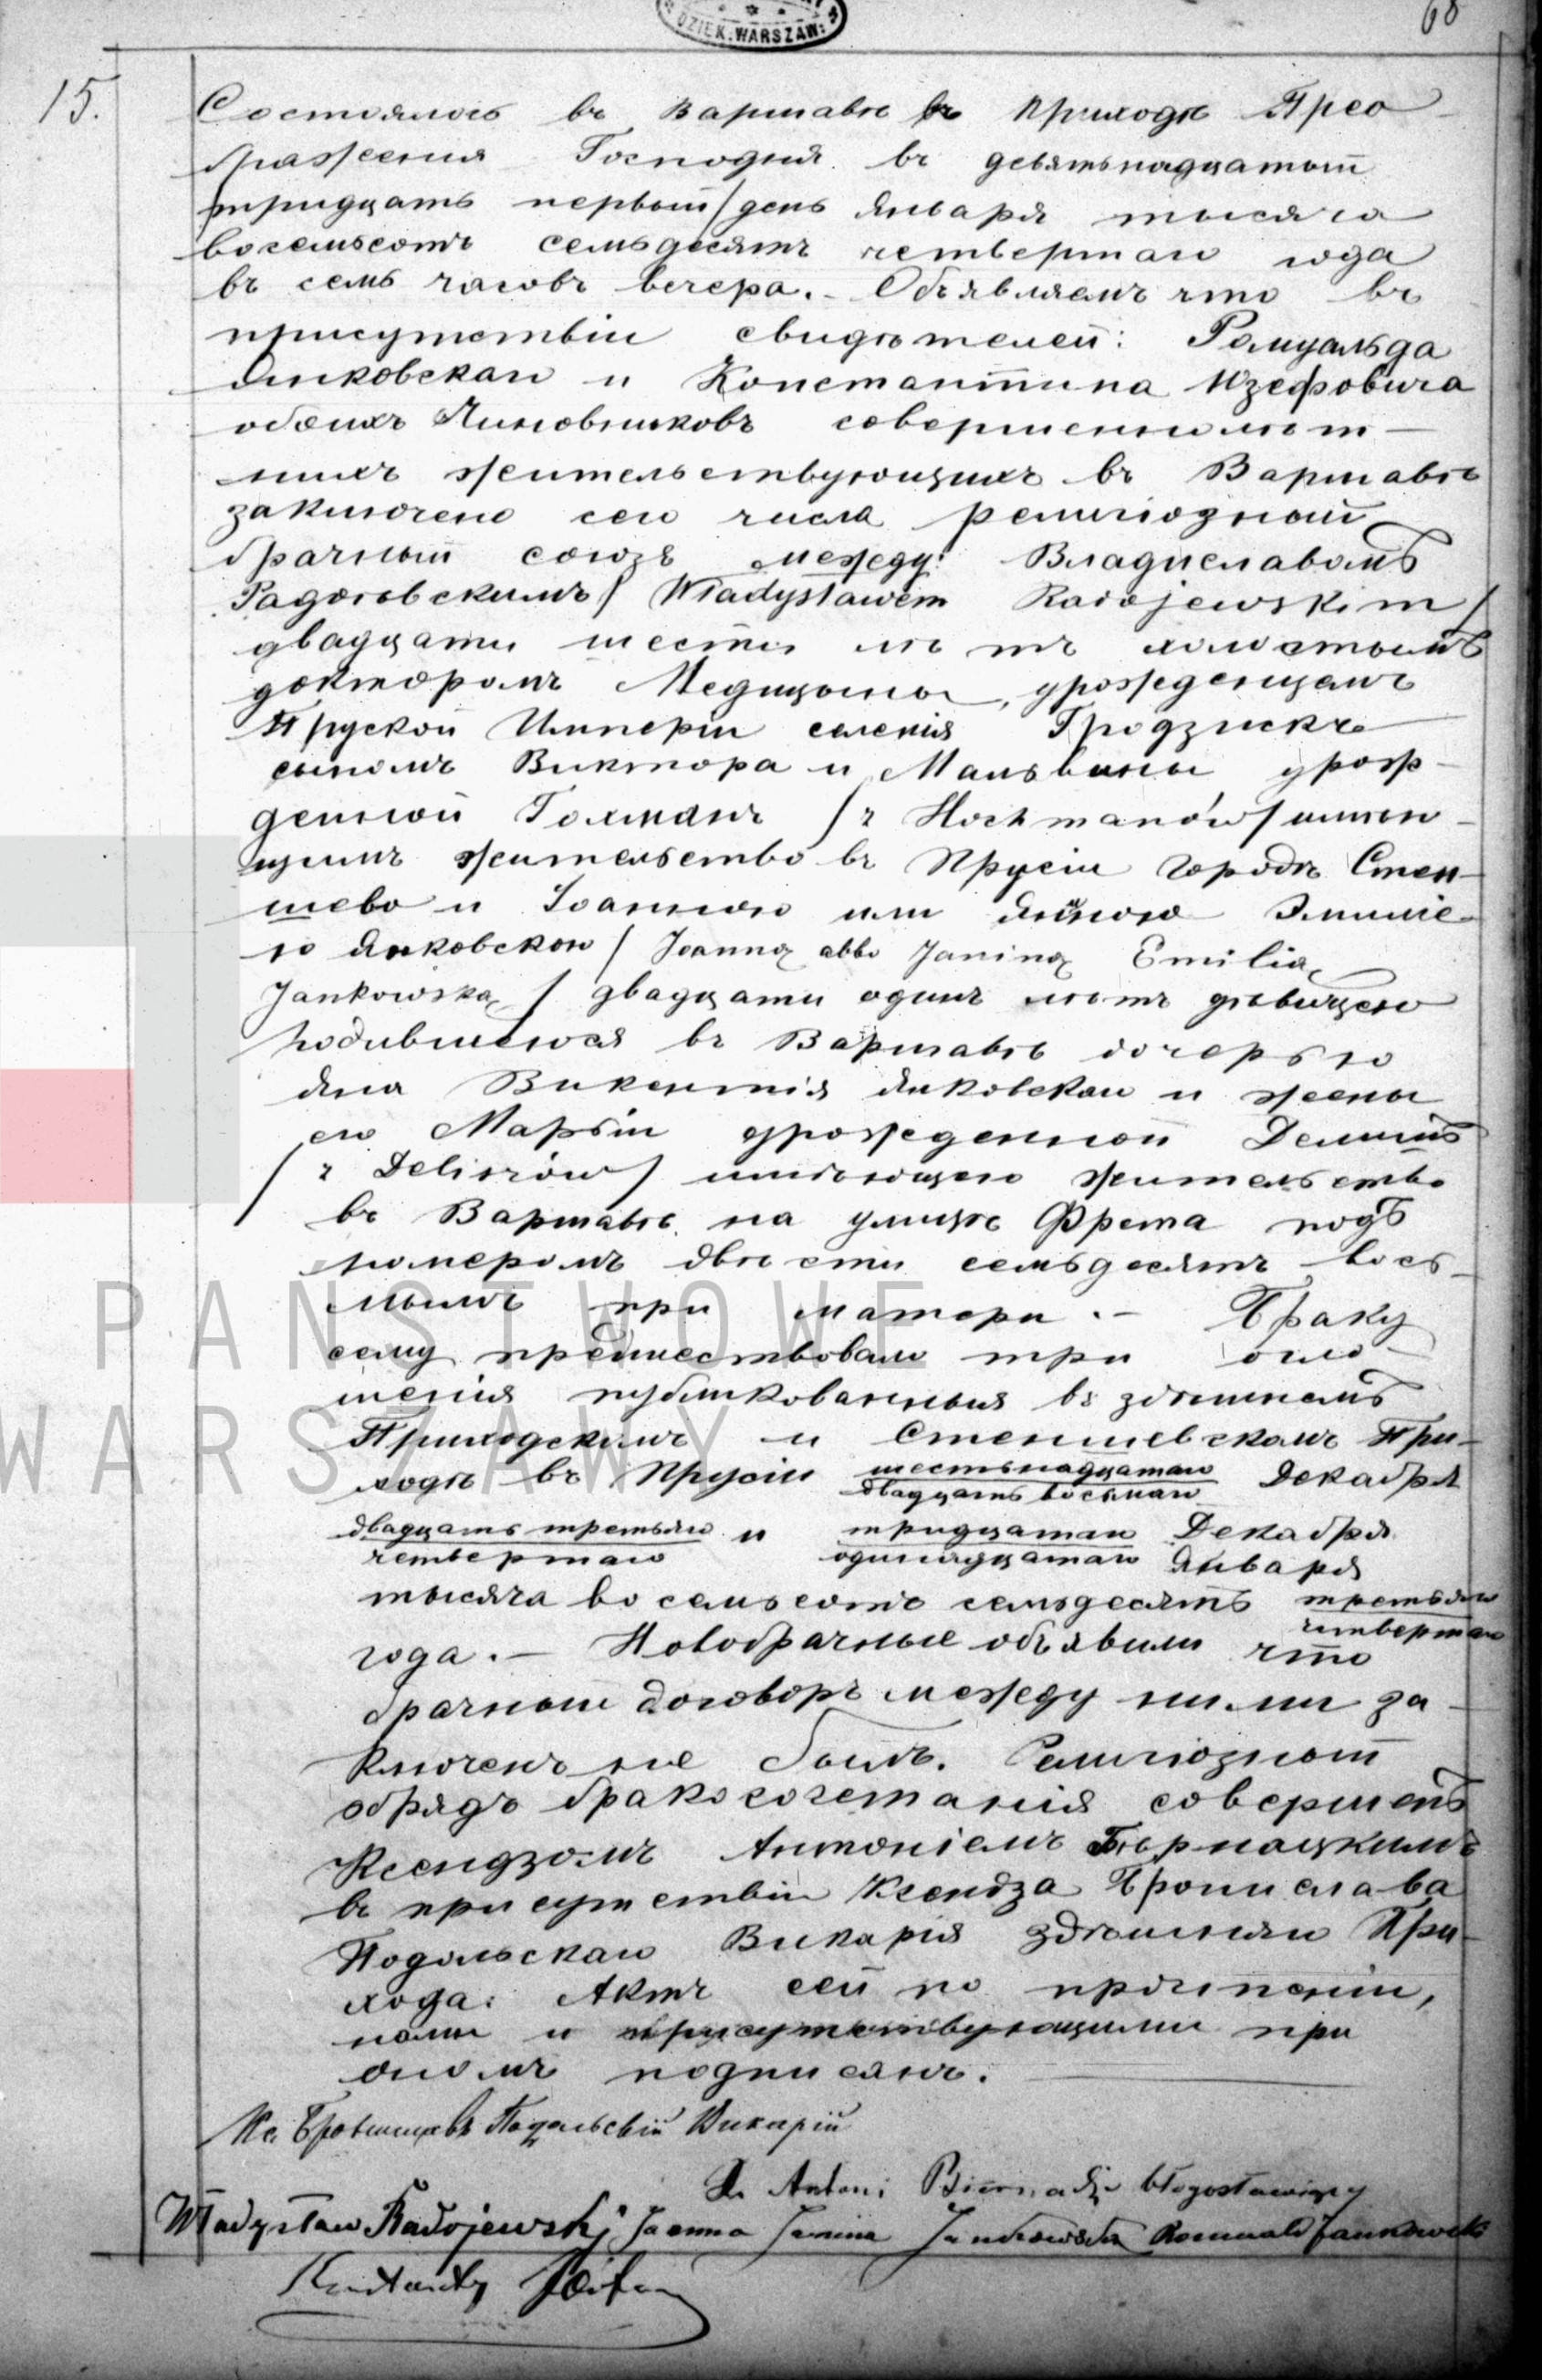 DZIEK. WARSZAW:
68
15.
Состоялось въ Варшавѣ въ приходѣ Прео-
браженія Господня въ девятьнадцатый
/тридцать первый/ день Января тысяча
восемьсотъ семьдесятъ четвертаго года
въ семь часовъ вечера. Объявляемъ что въ
присутствіи свидѣтелей: Ромуальда
Янковскаго и Константина Юзефовича
обоихъ Чиновниковъ совершеннолѣт-
нихъ жительствующихъ въ Варшавѣ
заключено сего числа религіозный
брачный союзъ между: Владиславомъ
Радоевскимъ / Władysławem Radojewskim /
двадцати шести лѣтъ холостымъ
докторомъ Медицины, урожденцемъ
Пруской Имперіи селенія Гродзискъ
сыномъ Виктора и Мальвины урож-
денной Гохманъ / z Hochmanów / имѣю-
щимъ жительство въ Прусіи городѣ Стен-
шево и Іоанною или Яниною Эмиліе-
ю Янковскою / Joanną albo Janiną Emilią
Jankowską / двадцати одинъ лѣтъ дѣвицею
родившеюся въ Варшавѣ дочерью
Яна Викентія Янковскаго и жены
его Марьіи урожденной Делишъ
/ z Deliszów / имѣющею жительство
въ Варшавѣ на улицѣ Фрета подъ
номеромъ двѣсти семьдесятъ вось-
мымъ при матери. — Браку
сему предшествовало три огло-
шенія публикованныя въ здѣшнемъ
Приходскомъ и Стеншевскомъ При-
ходѣ въ Прусіи шестьнадцатаго Декабря
двадцать восьмаго
двадцать третьяго и тридцатаго Декабря
четвертаго одинадцатаго Января
тысяча восемьсотъ семьдесятъ третьяго
четвертаго
года. — Новобрачные объявили что
брачный договоръ между ними за-
ключенъ не былъ. Религіозный
обрядъ бракосочетанія совершенъ
Ксендзомъ Антоніемъ Бѣрнацкимъ
въ присутствіи Ксендза Бронислава
Подольскаго Викарія здѣшняго При-
хода. Актъ сей по прочтеніи,
нами и присутствующими при
ономъ подписанъ.
Кс. Брониславъ Подольскій Викарій
X. Antoni Biernacki błogosławiący
Władysław Radojewski Joanna Janina Jankowska Romuald Jankowski
PAŃSTWOWE
WARSZAWY